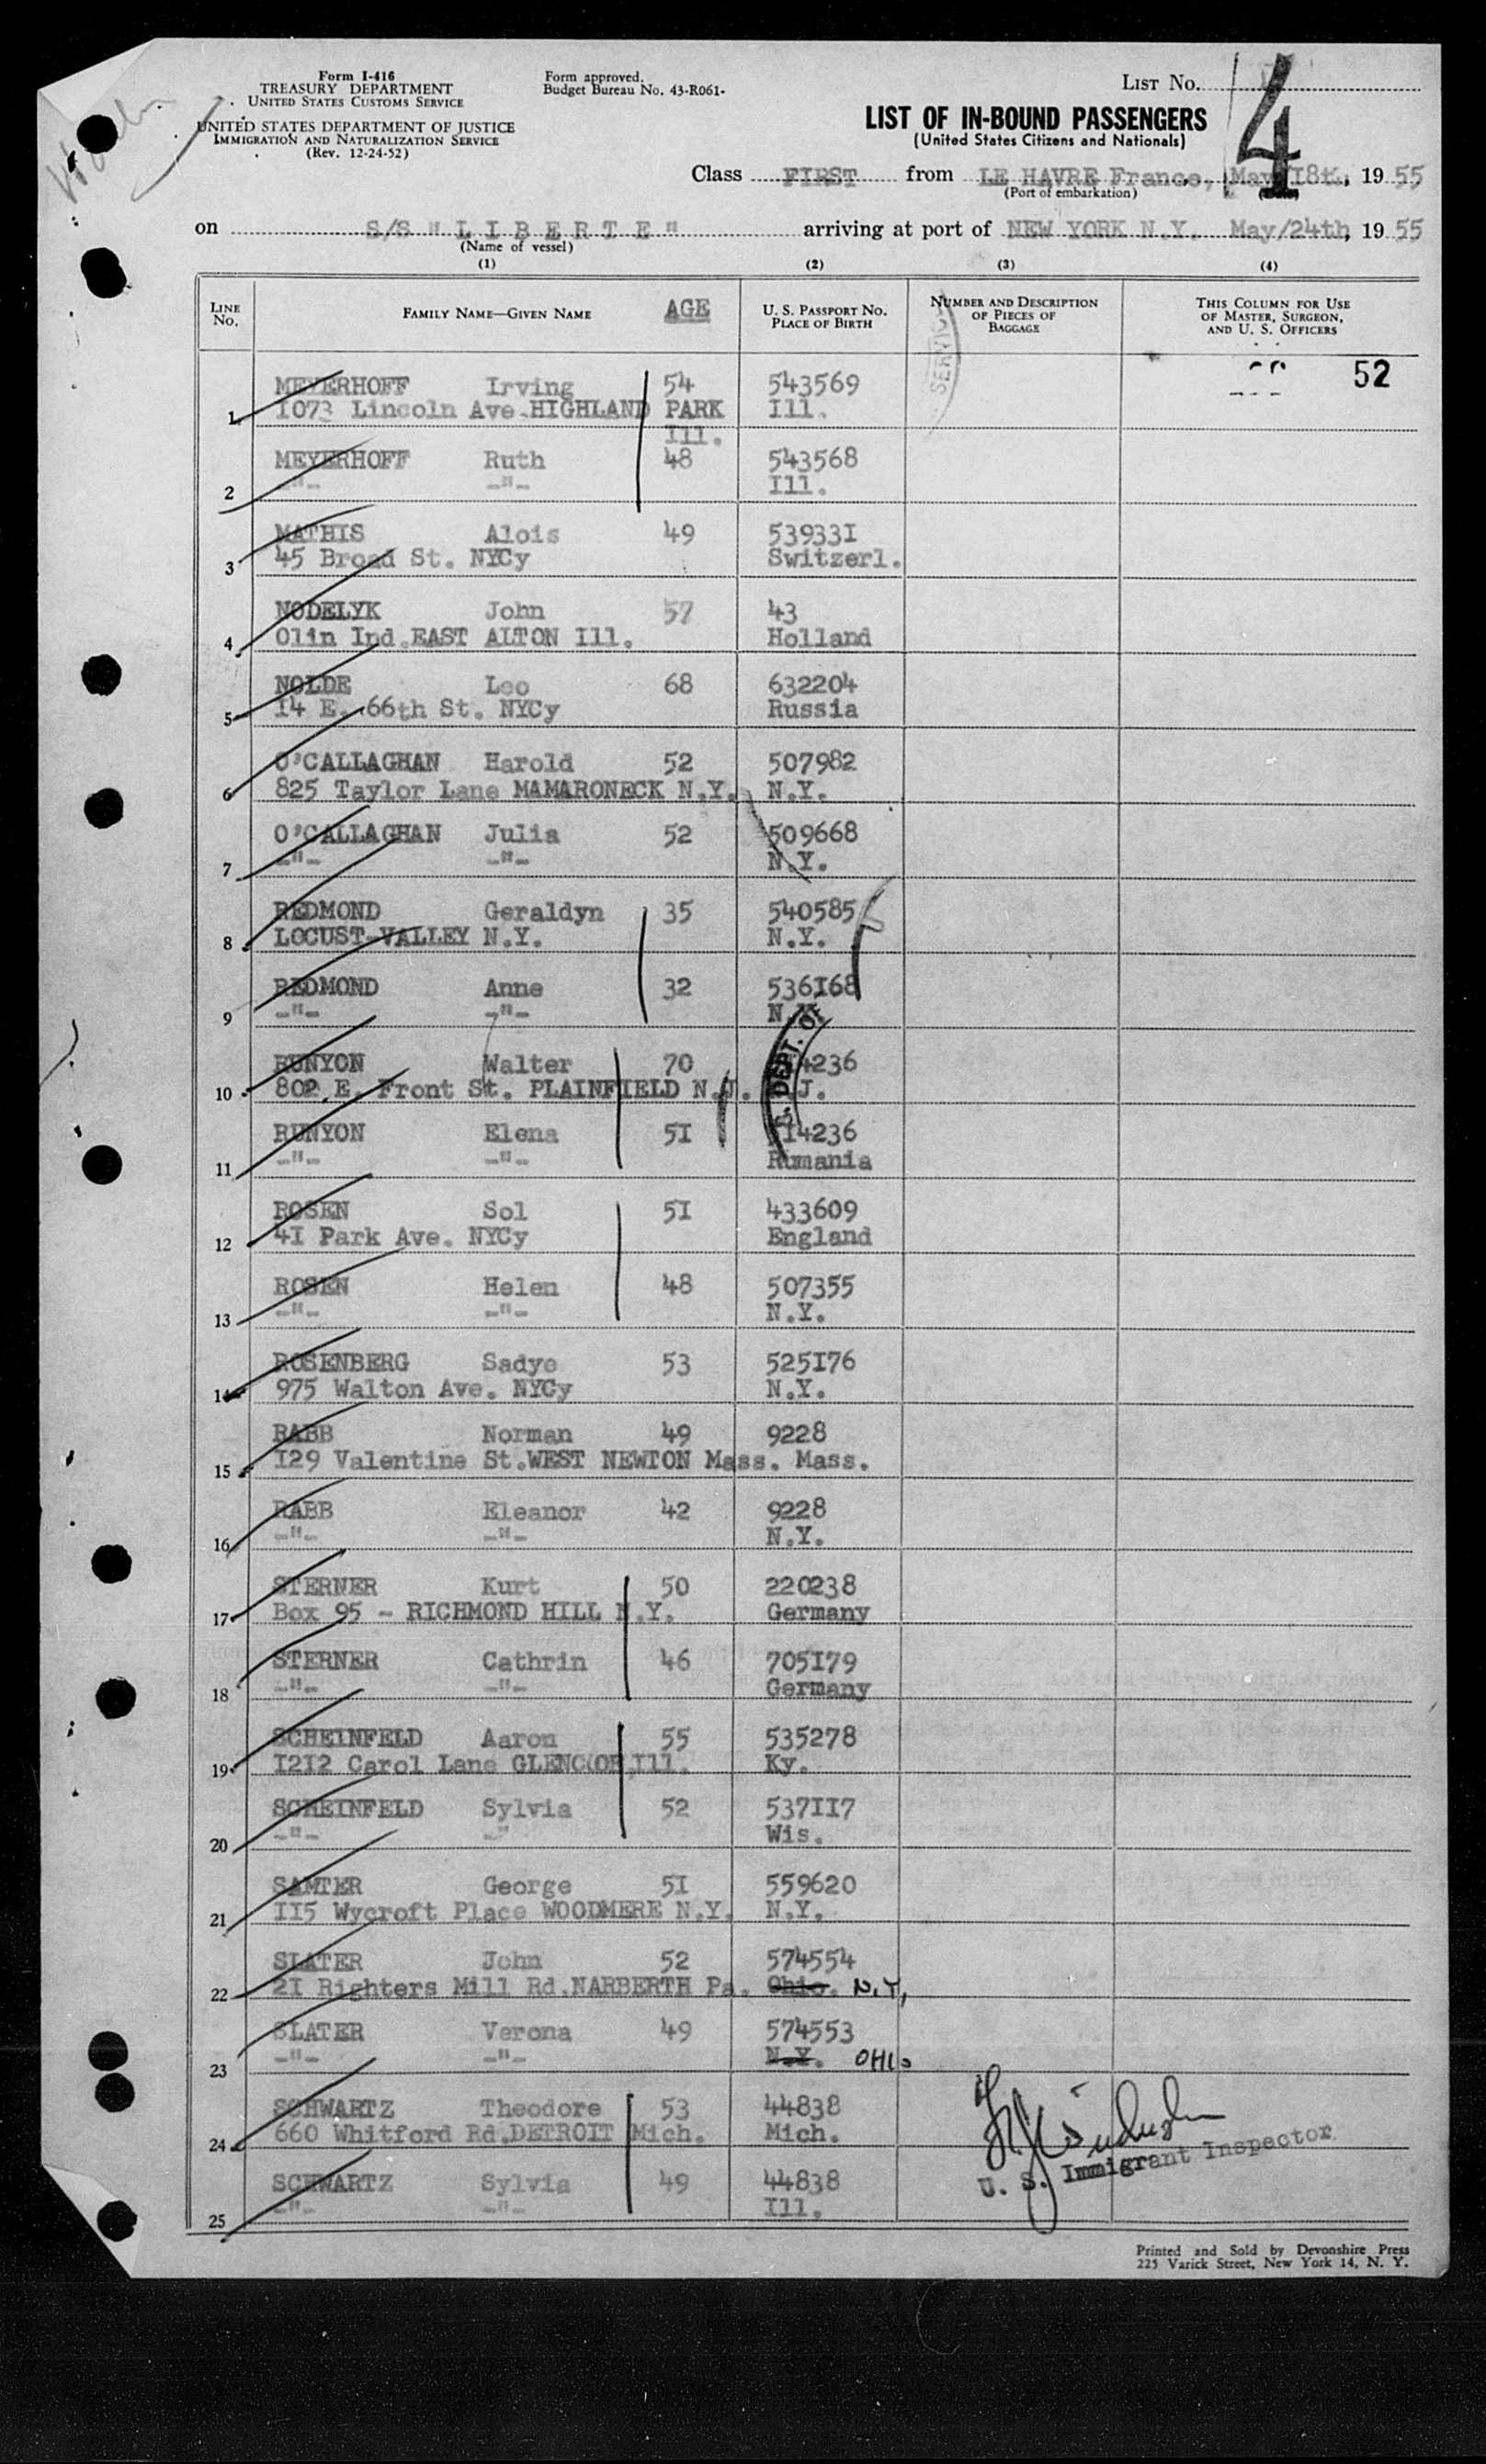 Form I-416
TREASURY DEPARTMENT
UNITED STATES CUSTOMS SERVICE
UNITED STATES DEPARTMENT OF JUSTICE
IMMIGRATION AND NATURALIZATION SERVICE
(Rev. 12-24-52)
Form approved.
Budget Bureau No. 43-R061-
LIST No. 4
LIST OF IN-BOUND PASSENGERS
(United States Citizens and Nationals)
Class FIRST from LE HAVRE France, May/18th, 1955
(Port of embarkation) (Date)
on S/S "LIBERTE" arriving at port of NEW YORK N.Y. May/24th, 1955
(Name of vessel)
(1) (2) (3) (4)
LINE No. FAMILY NAME—GIVEN NAME AGE U. S. PASSPORT No. PLACE OF BIRTH NUMBER AND DESCRIPTION OF PIECES OF BAGGAGE THIS COLUMN FOR USE OF MASTER, SURGEON, AND U. S. OFFICERS
SERVICE
52
MEYERHOFF Irving 54 543569
1 1073 Lincoln Ave.HIGHLAND PARK Ill. Ill.
MEYERHOFF Ruth 48 543568
2 -"- -"- Ill.
MATHIS Alois 49 539331
3 45 Broad St. NYCy Switzerl.
NODELYK John 57 43
4 Olin Ind.EAST ALTON Ill. Holland
NOLDE Leo 68 632204
5 14 E. 66th St. NYCy Russia
O'CALLAGHAN Harold 52 507982
6 825 Taylor Lane MAMARONECK N.Y. N.Y.
O'CALLAGHAN Julia 52 509668
7 -"- -"- N.Y.
REDMOND Geraldyn 35 540585
8 LOCUST-VALLEY N.Y. N.Y.
REDMOND Anne 32 536168
9 -"- -"- N.Y.
DEPT. OF
RUNYON Walter 70 14236
10 802 E. Front St. PLAINFIELD N.J. N.J.
RUNYON Elena 51 14236
11 -"- -"- Rumania
ROSEN Sol 51 433609
12 41 Park Ave. NYCy England
ROSEN Helen 48 507355
13 -"- -"- N.Y.
ROSENBERG Sadye 53 525176
14 975 Walton Ave. NYCy N.Y.
RABB Norman 49 9228
15 129 Valentine St.WEST NEWTON Mass. Mass.
RABB Eleanor 42 9228
16 -"- -"- N.Y.
STERNER Kurt 50 220238
17 Box 95 - RICHMOND HILL N.Y. Germany
STERNER Cathrin 46 705179
18 -"- -"- Germany
SCHEINFELD Aaron 55 535278
19 1212 Carol Lane GLENCOE Ill. Ky.
SCHEINFELD Sylvia 52 537117
20 -"- -"- Wis.
SAMTER George 51 559620
21 115 Wycroft Place WOODMERE N.Y. N.Y.
SLATER John 52 574554
22 21 Righters Mill Rd.NARBERTH Pa. Ohio. N.Y,
SLATER Verona 49 574553
23 -"- -"- N.Y. OHIO
SCHWARTZ Theodore 53 44838
24 660 Whitford Rd.DETROIT Mich. Mich.
SCHWARTZ Sylvia 49 44838
25 -"- -"- Ill.
U. S. Immigrant Inspector
Printed and Sold by Devonshire Press
225 Varick Street, New York 14, N. Y.